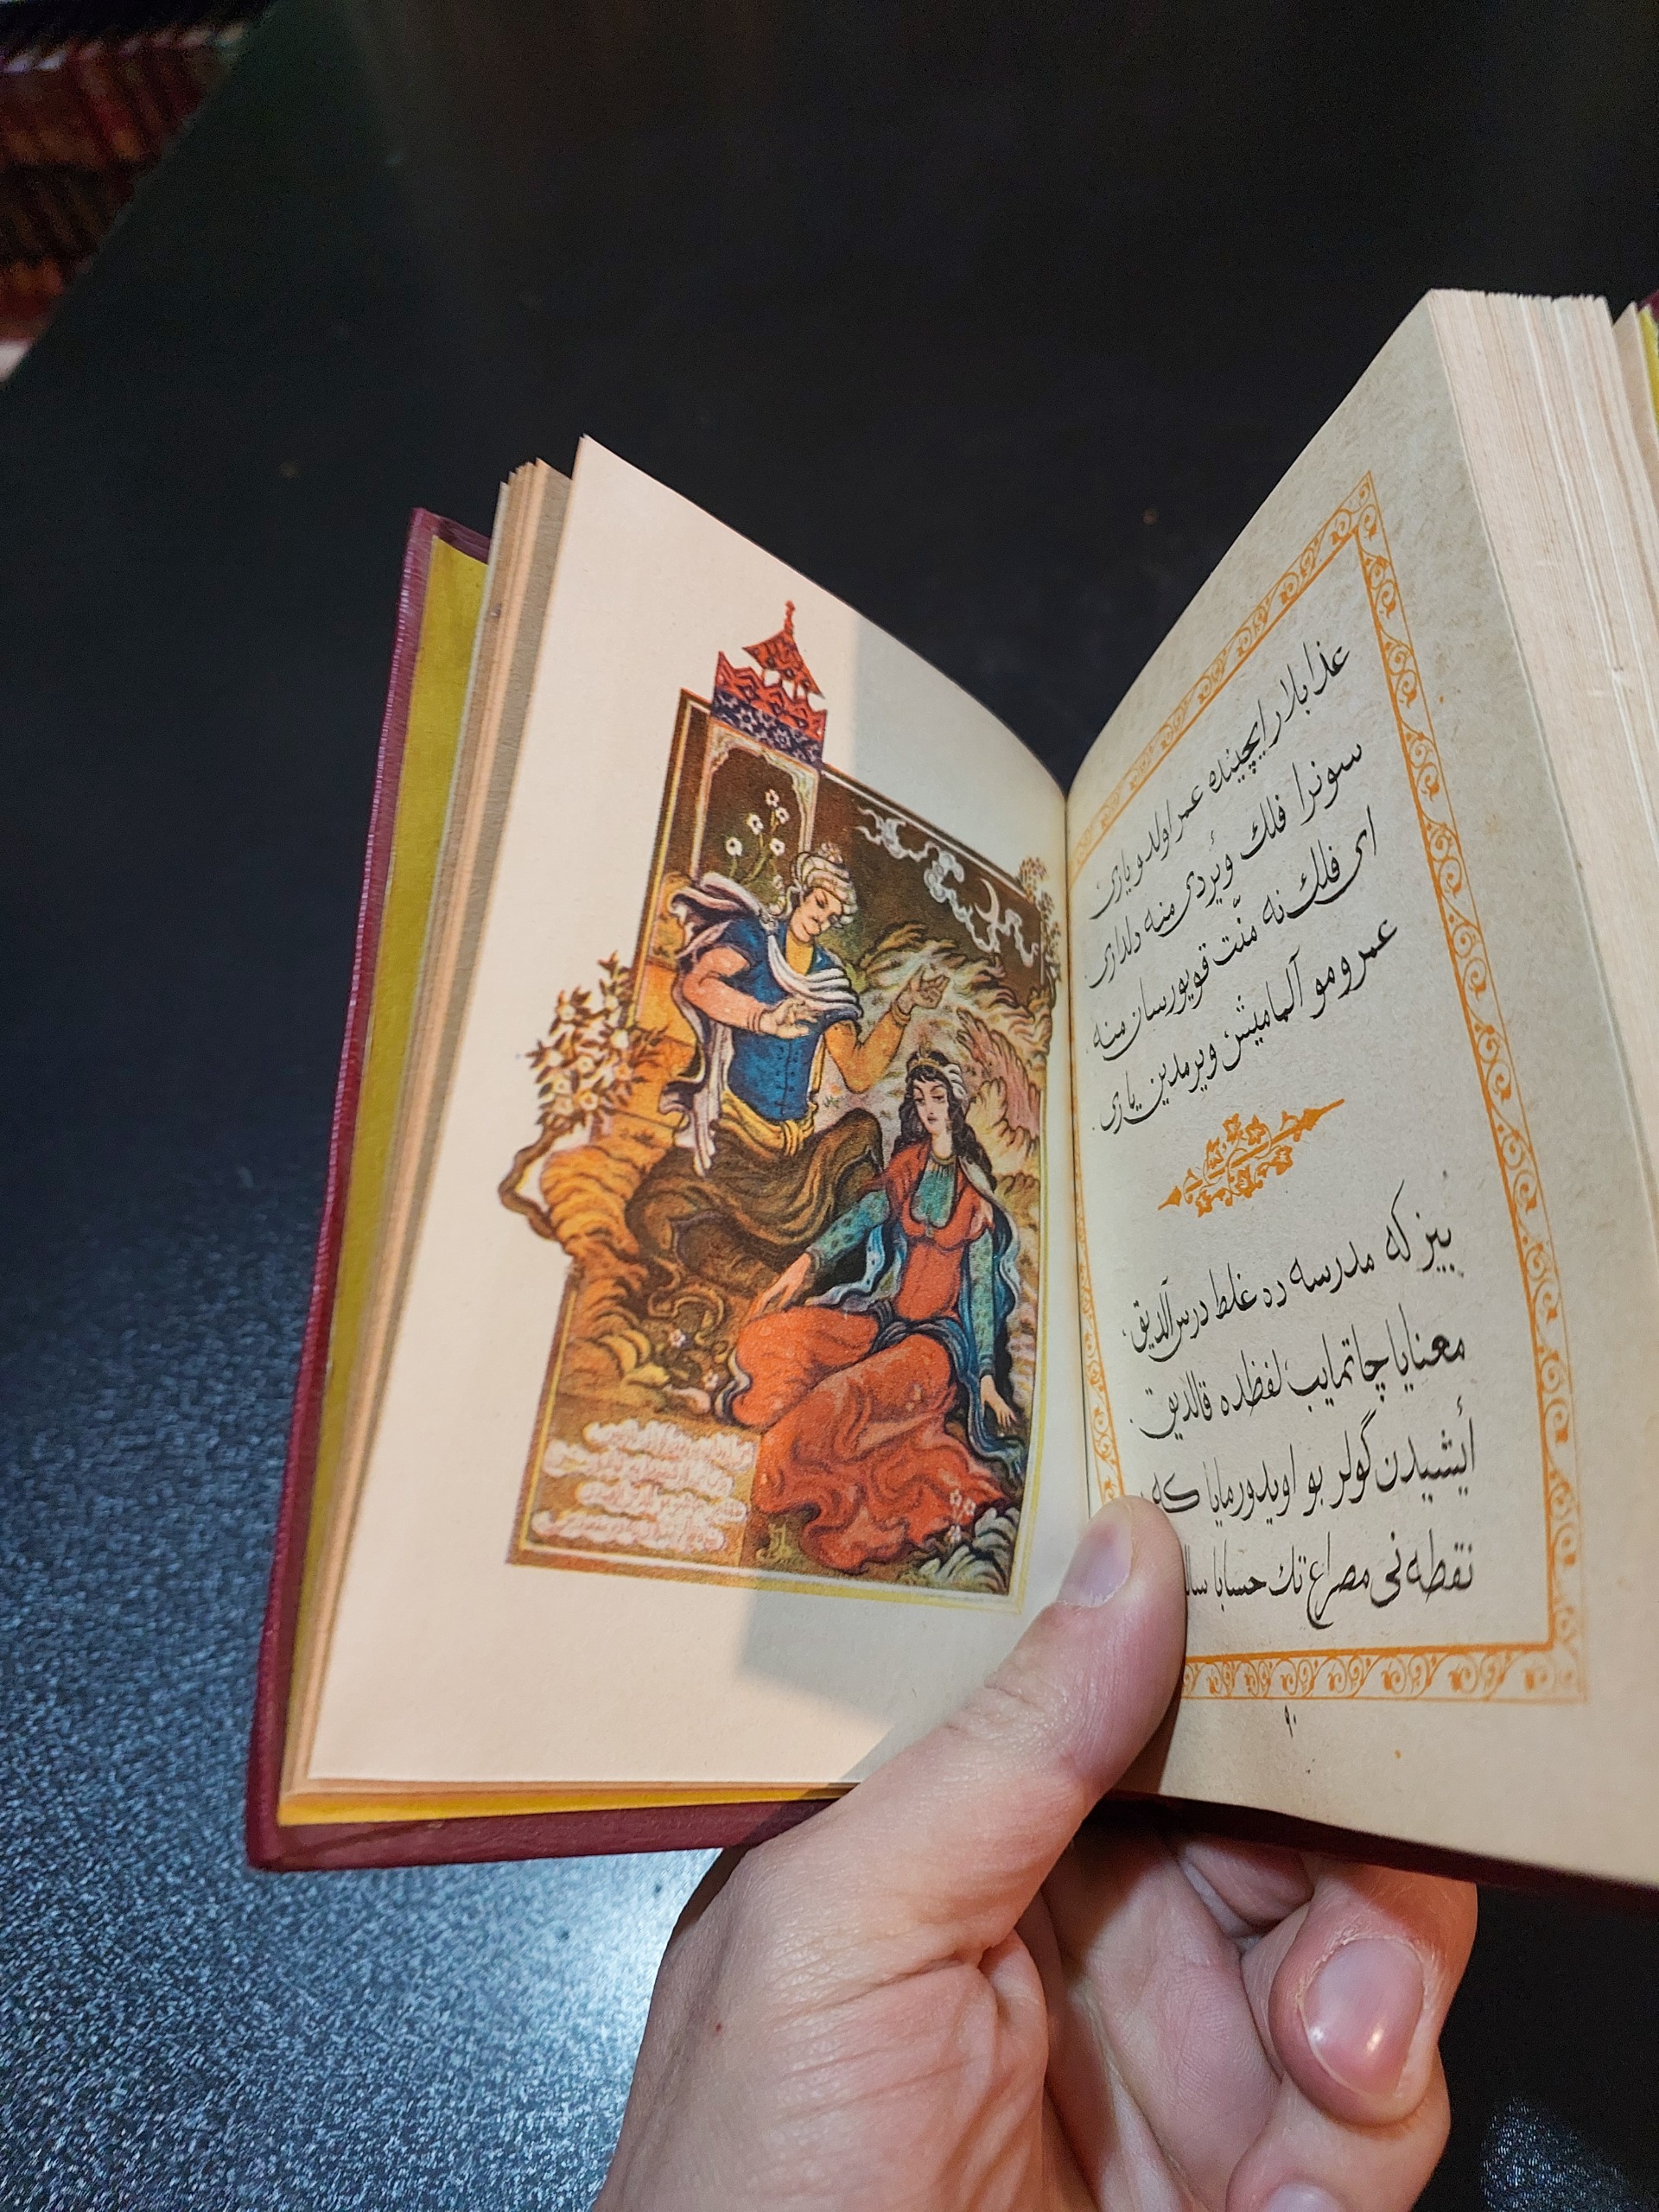 عذابلار ایچینده عمر اولدو یاری
سونرا فلک وئردی منه دلداری
ای فلک نه منّت قویورسان منه
عمرومو آلمامیش ویرمدین یاری
بیز که مدرسه ده غلط درس آلدیق
معنایا چاتمایب لفظده قالدیق
أیشیدن گولر بو اویدورمایا که
نقطه نی مصراع تک حسابا
۹۰